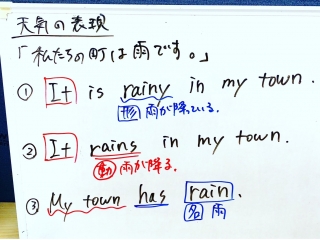 天気の表現
「私たちの町は雨です。」
① It is rainy in my town.
形 雨が降っている.
② It rains in my town.
動 雨が降る.
③ My town has rain.
名 雨